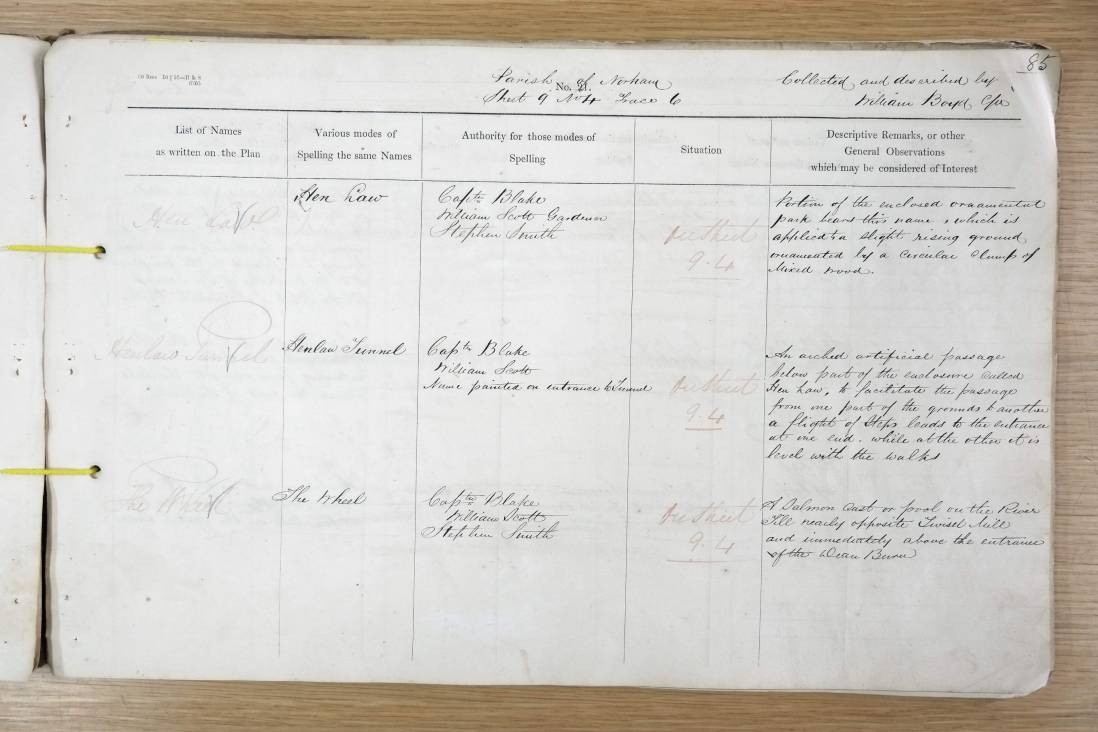 85
Parish of Norham
No. 21.
Sheet 9 No 4 Trace 6
Collected and described by
William Boyd C/A
List of Names
as written on the Plan
Various modes of
Spelling the same Names
Authority for those modes of
Spelling
Situation
Descriptive Remarks, or other
General Observations
which may be considered of Interest
Hen Law
Hen Law
Captn Blake
William Scott Gardener
Stephen Smith
On Sheet
9.4
Portion of the enclosed ornamental
park bears this name, which is
applied to a slight rising ground
ornamented by a Circular Clump of
Mixed wood.
Henlaw Tunnel
Henlaw Tunnel
Captn Blake
William Scott
Name painted on entrance to Tunnel
On Sheet
9.4
An arched artificial passage
below part of the enclosure called
Hen Law, to facilitate the passage
from one part of the grounds to another
a flight of Steps leads to the entrance
at one end. while at the other it is
level with the walks
The Wheel
The Wheel
Captn Blake
William Scott
Stephen Smith
On Sheet
9.4
A Salmon Cast or pool on the River
Till nearly opposite Twisel Mill
and immediately above the entrance
of the Dean Burn